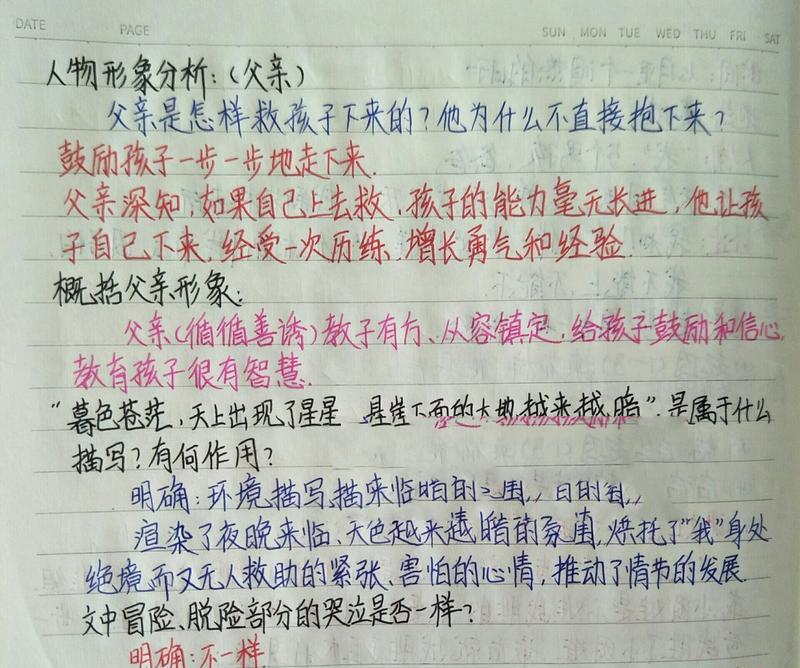 DATE
PAGE
SUN MON TUE WED THU FRI SAT
人物形象分析:(父亲)
父亲是怎样救孩子下来的?他为什么不直接抱下来?
鼓励孩子一步一步地走下来.
父亲深知,如果自己上去救,孩子的能力毫无长进,他让孩
子自己下来,经受一次历练,增长勇气和经验.
概括父亲形象:
父亲(循循善诱)教子有方、从容镇定,给孩子鼓励和信心,
教育孩子很有智慧.
“暮色苍茫,天上出现了星星 悬崖下面的大地越来越暗”.是属于什么
描写?有何作用?
明确:环境描写,描
渲染了夜晚来临、天色越来越暗的氛围,烘托了“我”身处
绝境而又无人救助的紧张、害怕的心情,推动了情节的发展.
文中冒险、脱险部分的哭泣是否一样?
明确:不一样.